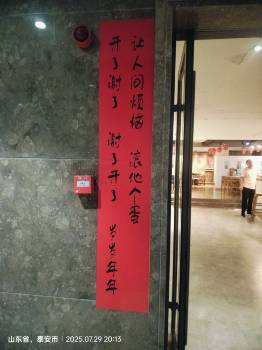 让人间烦恼 滚他个蛋
开了谢了 谢了开了 岁岁年年
山东省，泰安市 | 2025.07.29 20:13